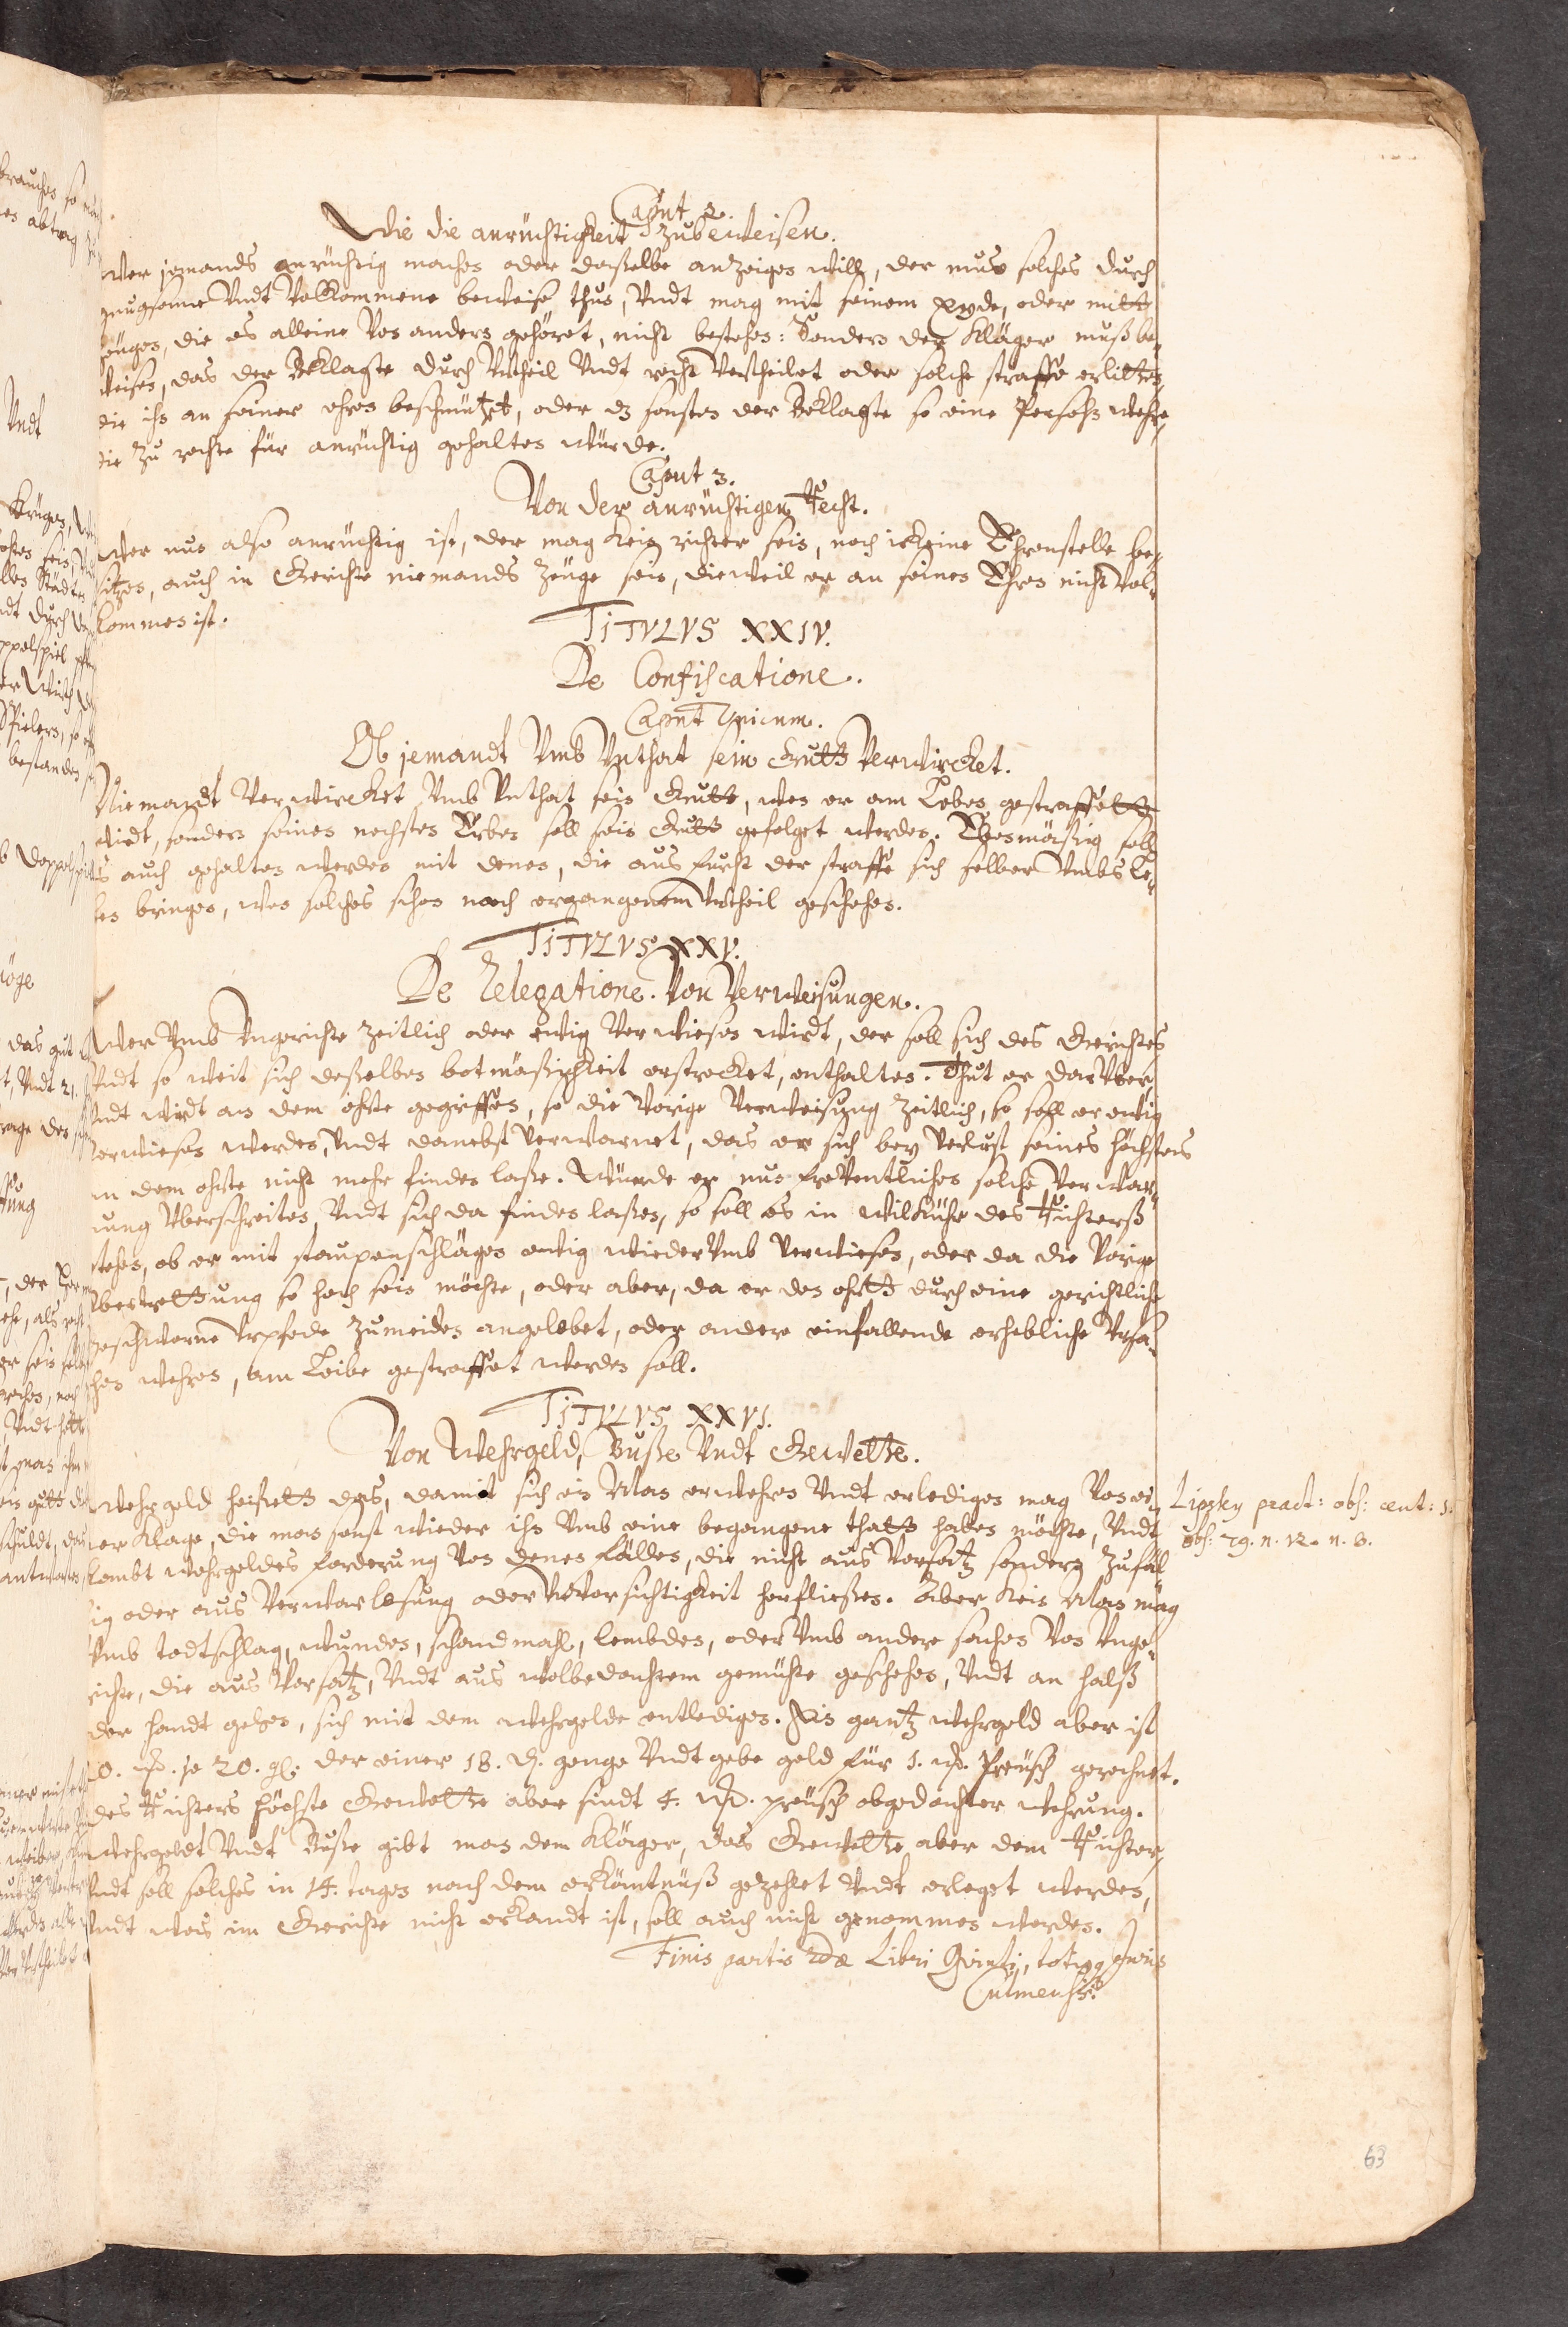 Caput 2.
Wie die anrüchtigkeit zubeweisen.
Wer jemands anrüchtig machen oder daßelbe anzeigen will, der mus solches durch
gnugsame Vndt Volkommene beweise thun, Vndt mag mit seinem eyde, oder mitt
zeugen, die es alleine Von andern gehöret, nicht bestehen: Sondern der Kläger muß be-
weisen, das der Beklagte durch Vrtheil Vndt recht Vertheilet oder solche straffe erlitten,
die ihn an seiner ehren beschmützet, oder dz sonsten der Beklagte so eine Persohn wehre,
die zu rechte für anrüchtig gehalten würde.
Caput 3.
Von der anrüchtigen Recht.
Wer nun also anrüchtig ist, der mag kein richter sein, noch ickeine Ehrenstelle be-
sitzen, auch in Gerichte niemands zeuge sein, dieweil er an seinen Ehren nicht Vol-
kommen ist.
TITVLVS XXIV.
De Confiscatione.
Caput Vnicum.
Ob jemandt Vmb Vnthat sein Gutt Verwircket.
Niemandt Verwircket Vmb Vnthat sein Gutt, wen er am Leben gestraffett
wirdt, sondern seinen nechsten Erben soll sein Gutt gefolget werden. Ebenmäßig soll
es auch gehalten werden mit denen, die aus furcht der straffe sich selber Vmbs Le-
ben bringen, wen solches schon nach ergangenem Vrtheil geschehen.
TITVLVS XXV.
De Relegatione. Von Verweisungen.
Wer Vmb Vngerichte zeitlich oder ewig Verwiesen wirdt, der soll sich des Gerichtes
Vndt so weit sich deßelben botmäßigkeit erstrecket, enthalten. Thut er darVber,
Vndt wirdt an dem ohrte gegriffen, so die Vorige Verweisung zeitlich, so soll er ewig
Verwiesen werden, Vndt darnebst verwarnet, das er sich bey Verlust seines höchsten
an dem ohrte nicht mehr finden laße. Würde er nun freVentlichen solche Verwar-
nung Vberschreiten, Vndt sich da finden laßen, so soll es in Wilkühr des Richterß
stehen, ob er mit staupenschlägen ewig wiederVmb Verwiesen, oder da die Vorige
Vbertrettung so hoch sein möchte, oder aber, da er den ohrtt durch eine gerichtliche
geschworne Vrpfede zumeiden angelobet, oder andere einfallende erhebliche Vrsa-
chen wehren, am Leibe gestraffet werden soll.
TITVLVS XXVI.
Von Wehrgeld, Buße Vndt Gewette.
Wehrgeld heisett das, damit sich ein Man erwehren Vndt erledigen mag Von ei-
ner Klage, die man sonst wieder ihn Vmb eine begangene thatt haben möchte, Vndt
kombt wehrgeldes forderung Von denen fällen, die nicht aus Vorsatz sondern zufäl-
lig oder aus Verwarlosung oder VnVorsichtigkeit herfließen. Aber kein Man mag
Vmb todtschlag, wunden, schandmahl, lembden, oder Vmb andere sachen Von Vnge-
richte, die aus Vorsatz, Vndt aus wolbedachtem gemühte geschehen, Vndt an halß
oder handt gehen, sich mit dem wehrgelde entledigen. Ein gantz wehrgeld aber ist
je 20. gl. der einer 18. d. genge Vndt gebe geld für 1. Preusch gerechnet.
des Richters höchste Gewette aber sindt 4. preusch obgedachter wehrung.
Wehrgeldt Vndt Buße gibt man dem Kläger, das Gewette aber dem Richter,
Vndt soll solches in 14. tagen nach dem erkäntnüß gezehlet Vndt erleget werden,
Vndt was im Gerichte nicht erkandt ist, soll auch nicht genommen werden.
Finis partis 2dæ Libri Qvinti, totiusq Juris
Culmensis.
Lipsky pract: obs: cent: 1.
obs: 79. n. 12. n. 8.
63